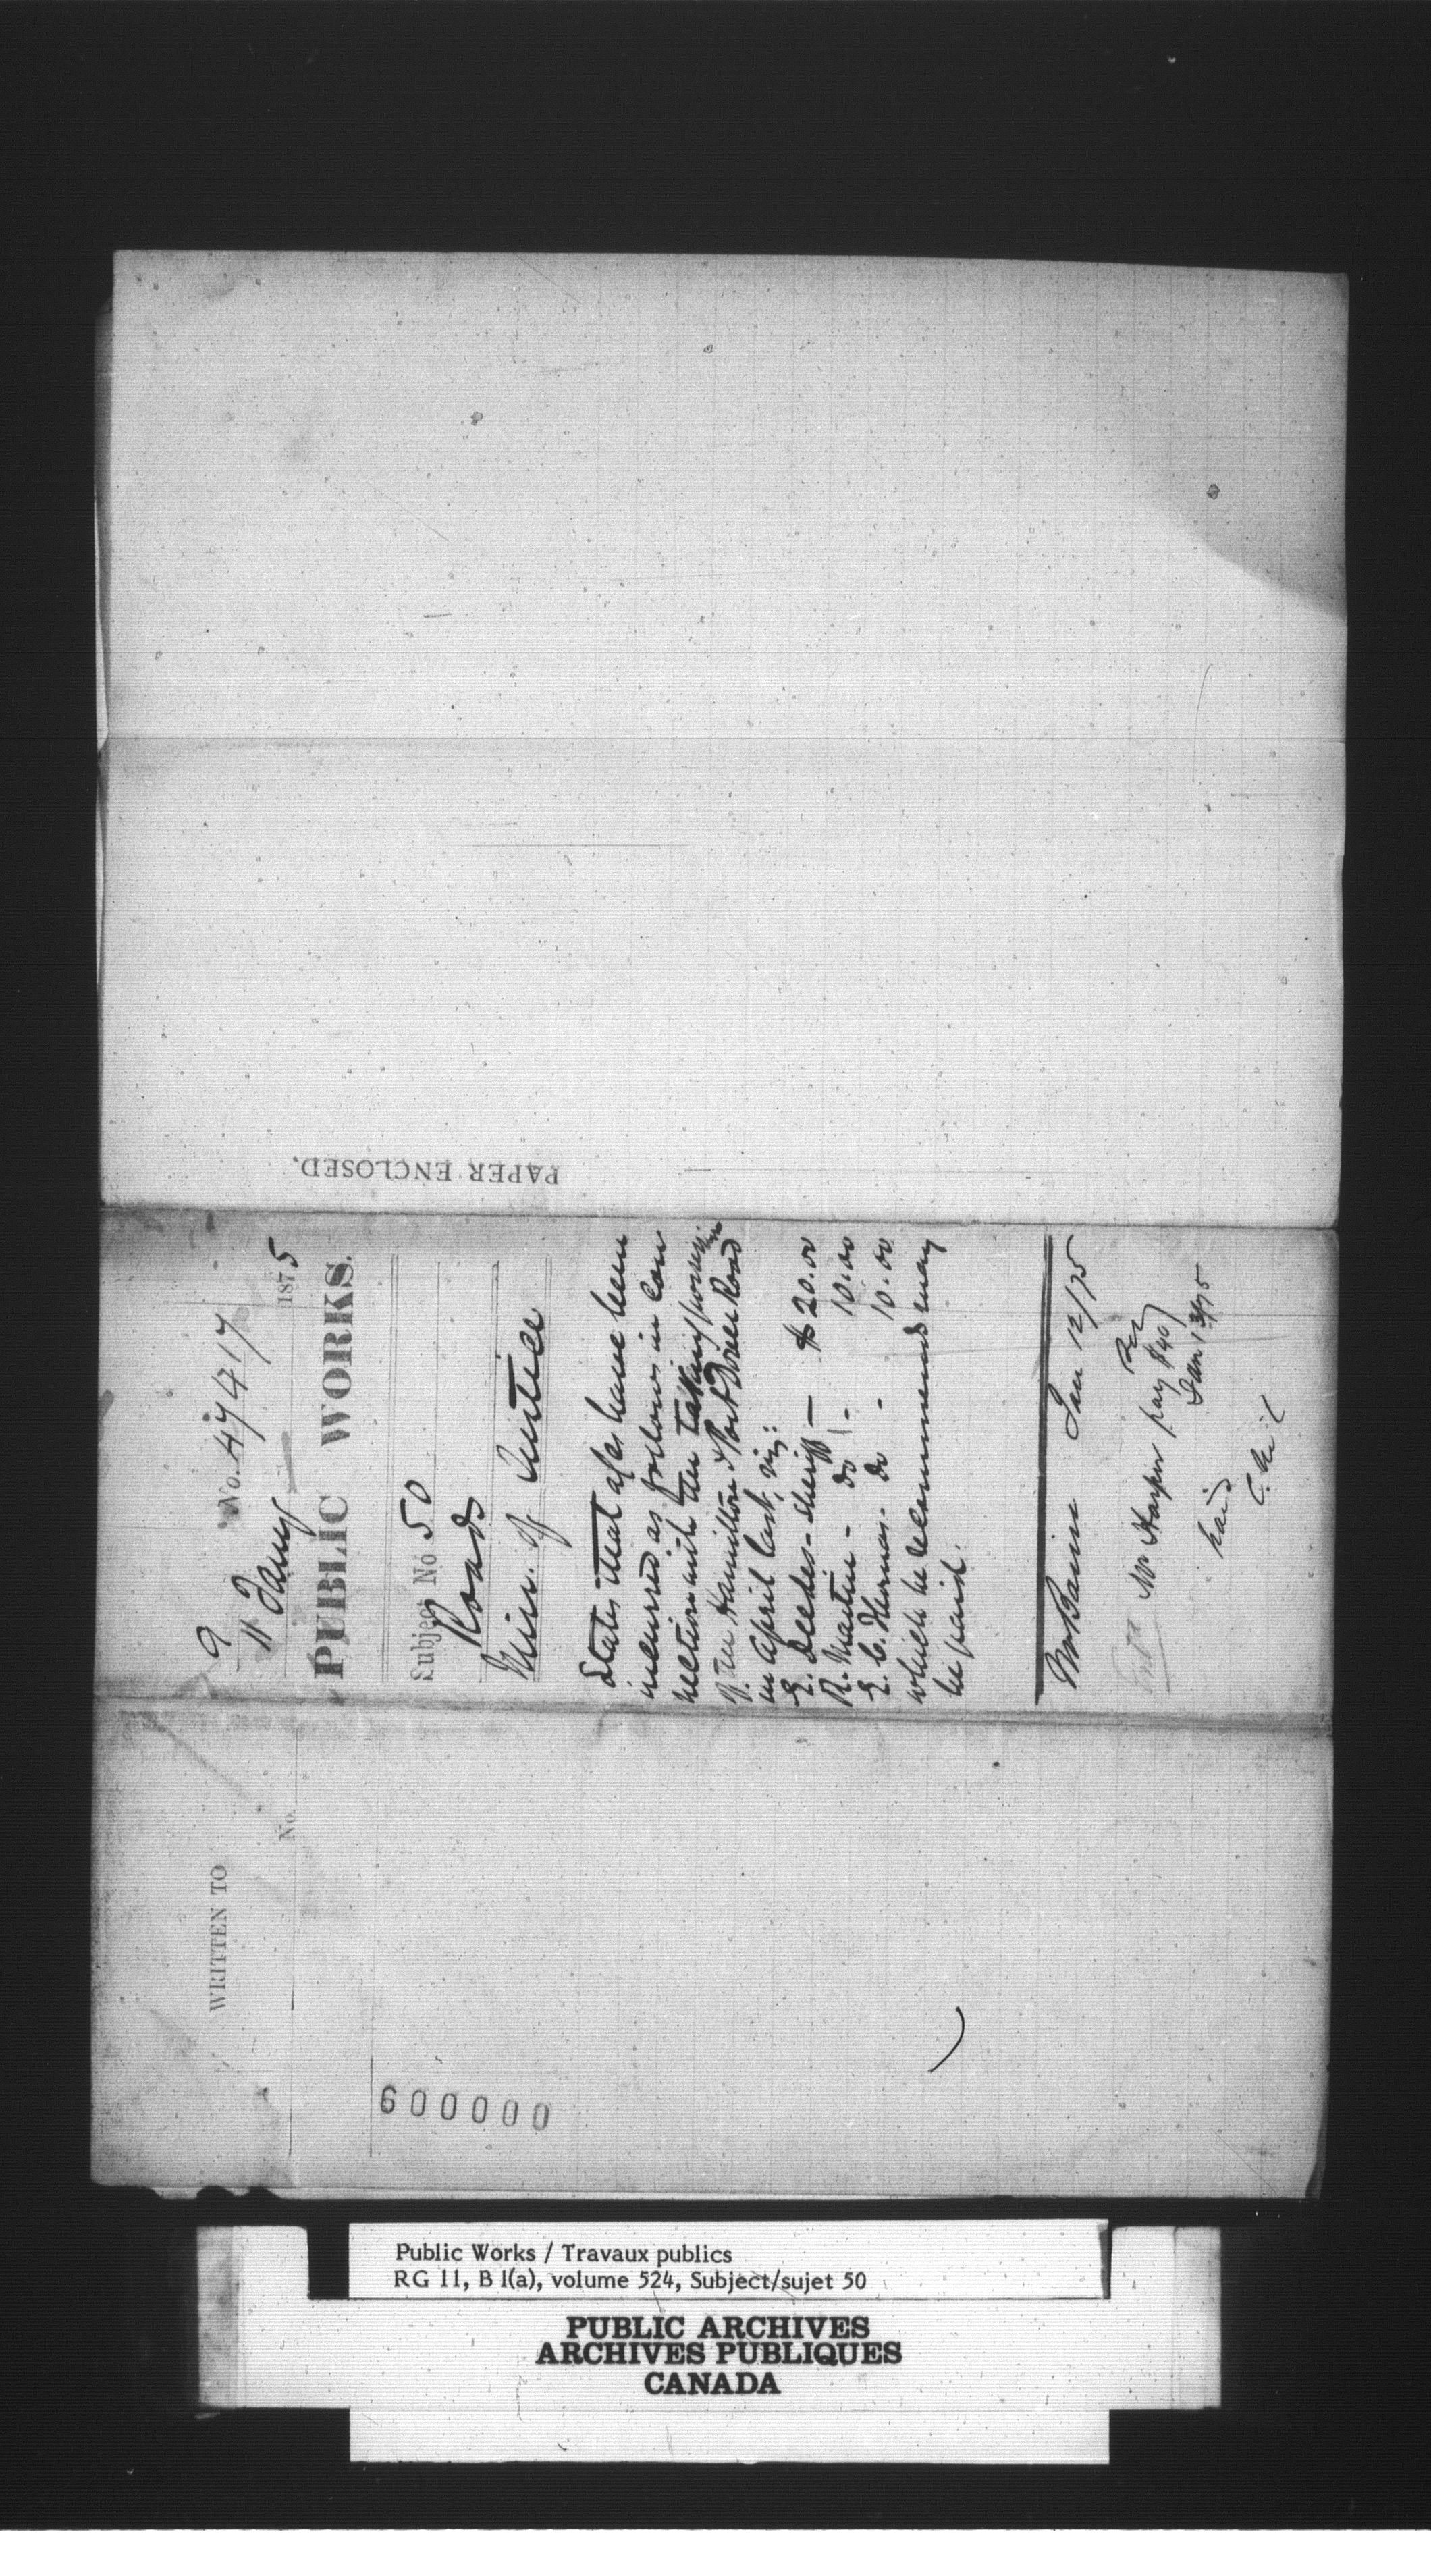 No. 47417
9
11 Jany 1875
PUBLIC WORKS.
Subject No 50
Roads
Min. of Justice
States that a/cs have been
incurred as follows in con
nection with the taking possession
of the Hamilton & Port Dover Road
in April last, viz:
E. Deedes - Sheriff — $20.00
R. Martin - do - 10.00
E. C. Thomas - do - 10.00
which he recommends may
be paid.
Mr Bain Jan 12/75
Mr Harper pay $40
Jan 13/75
paid
PAPER ENCLOSED.
WRITTEN TO
No.
600000
Public Works / Travaux publics
RG 11, B 1(a), volume 524, Subject/sujet 50
PUBLIC ARCHIVES
ARCHIVES PUBLIQUES
CANADA